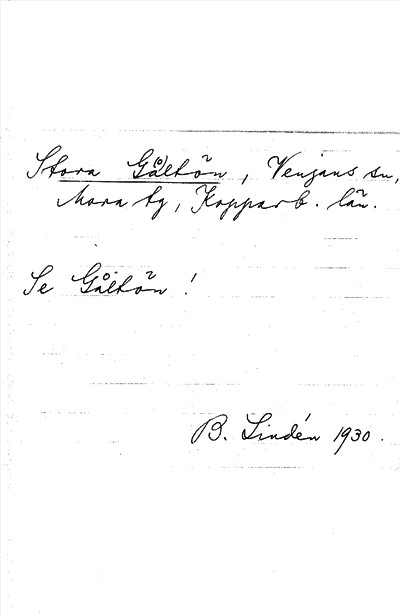 Stora Gå(o)ltön, Venjans sn,
Mora tg, Kopparb. län.
Se Gåltön!
B. Lindén 1930.